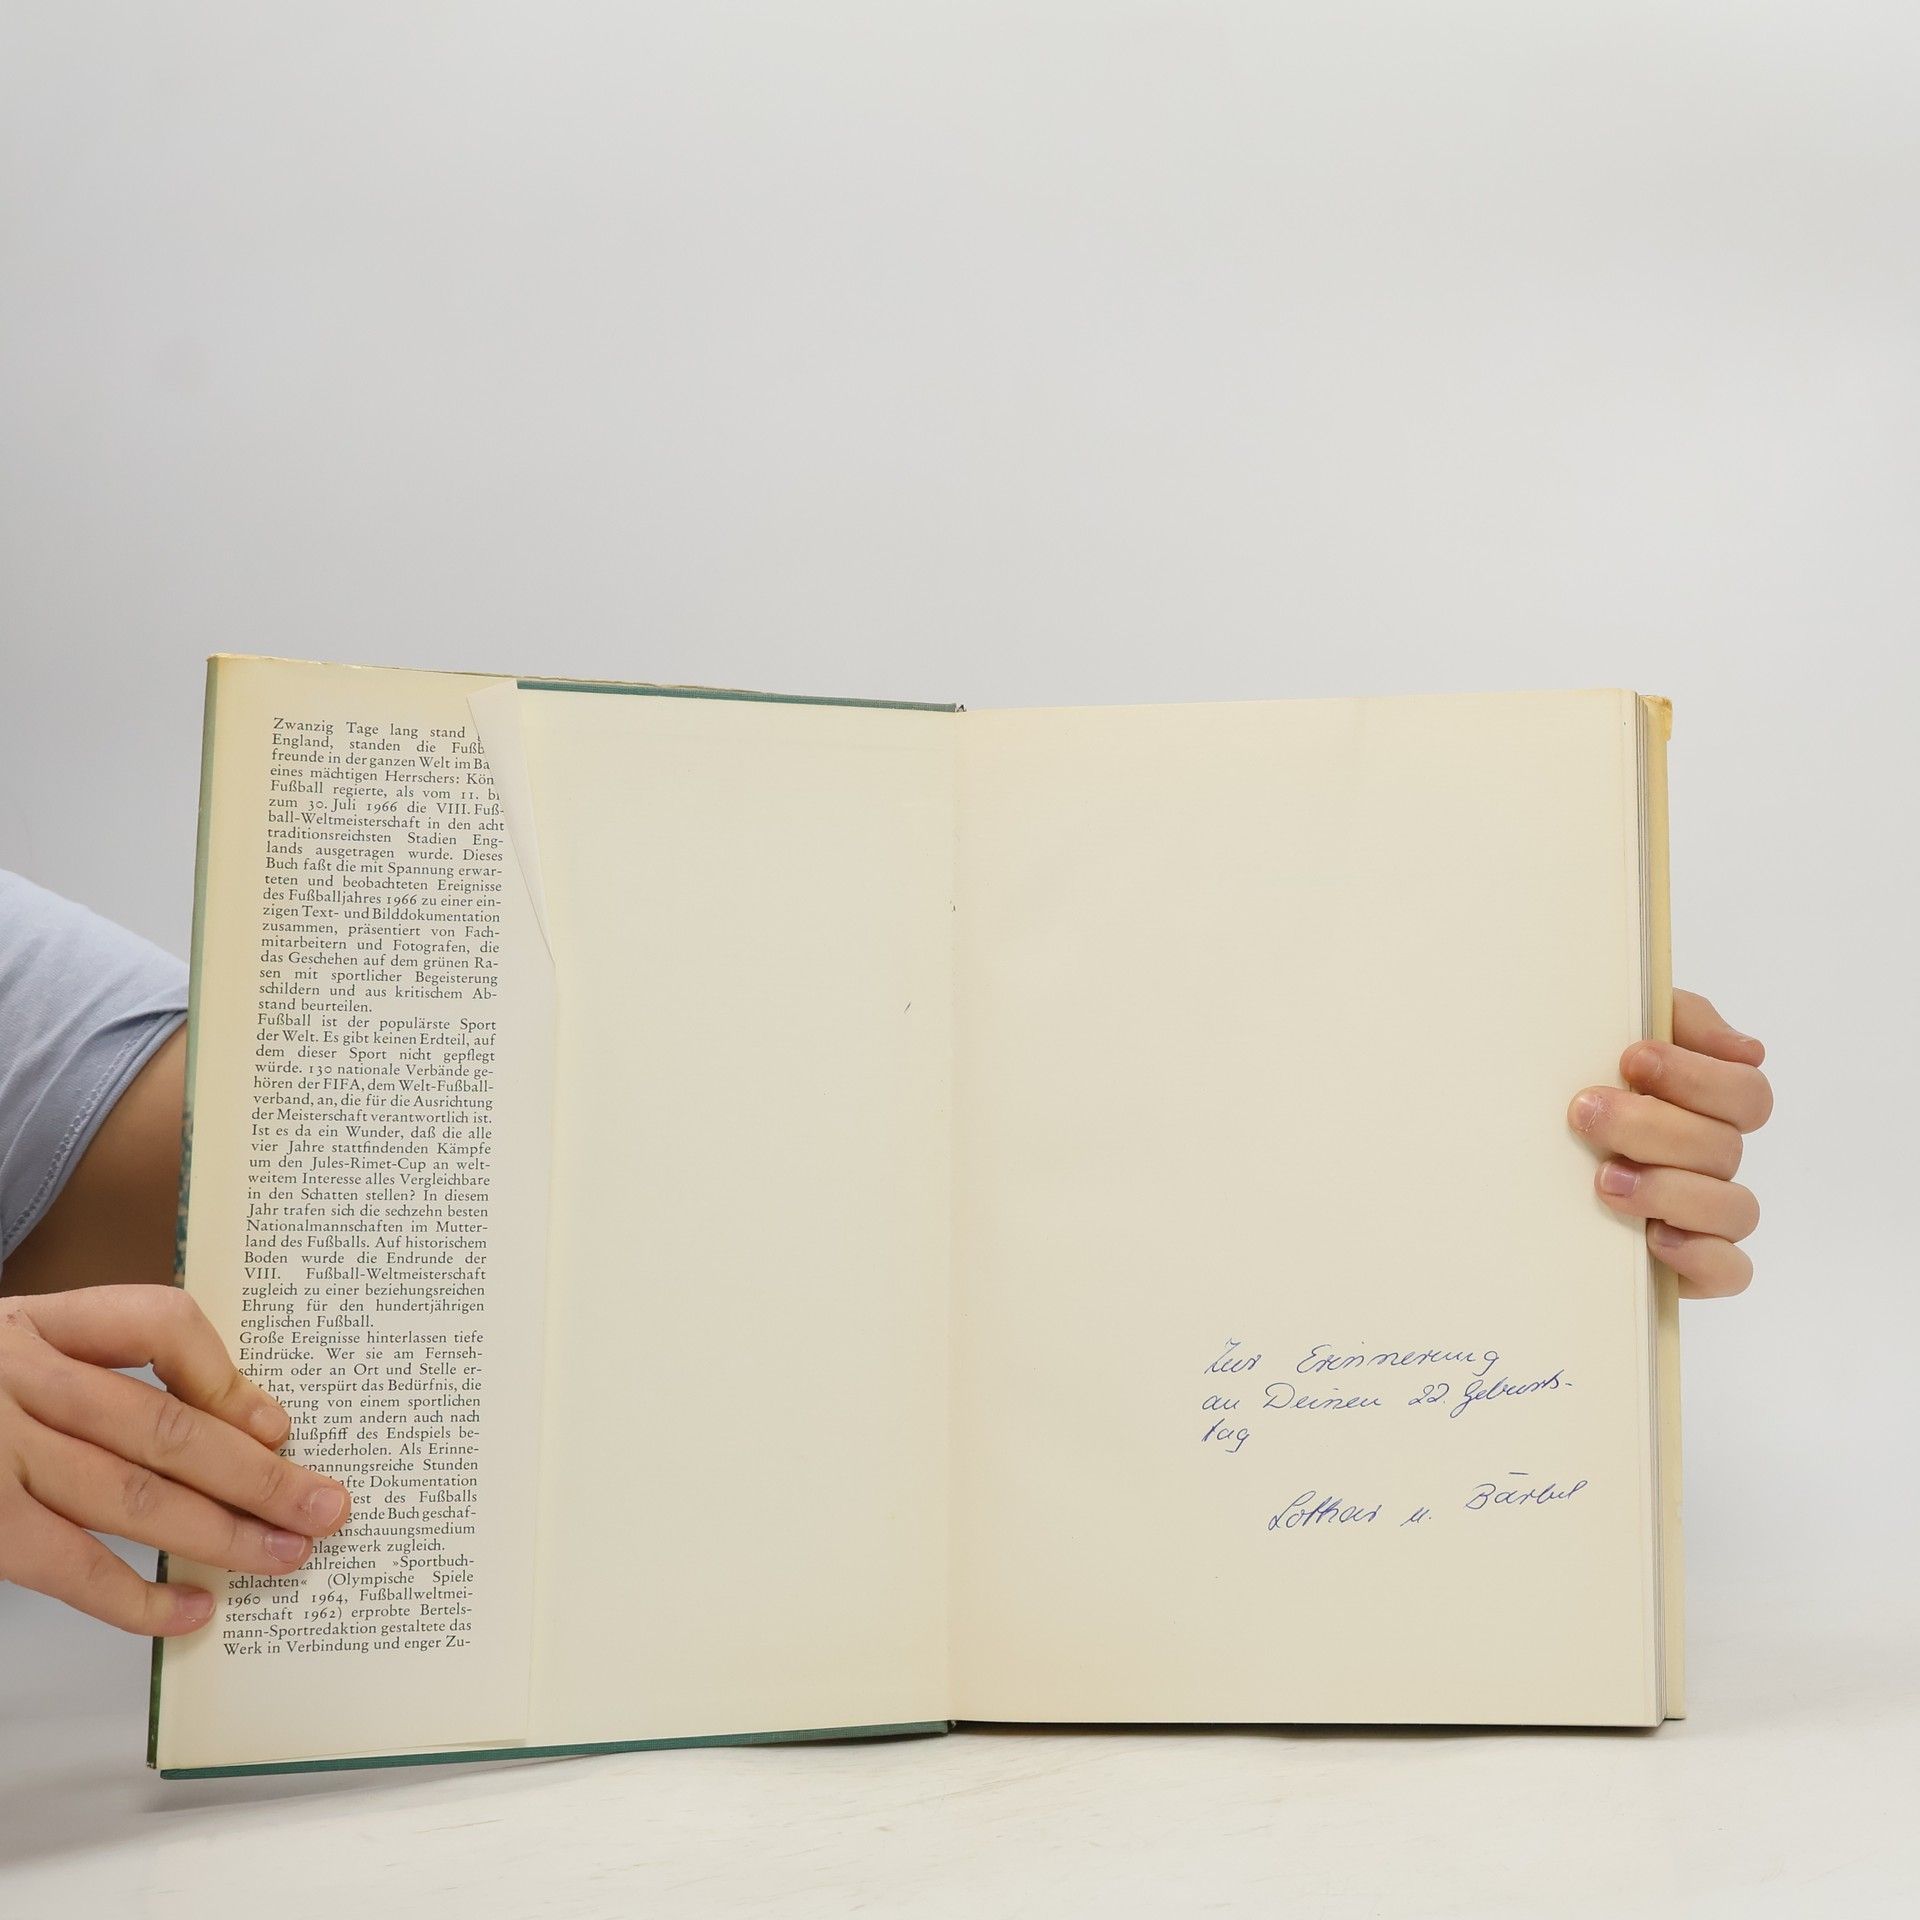 Zwanzig Tage lang stand
England, standen die Fußb
freunde in der ganzen Welt im Ba
eines mächtigen Herrschers: Kön
Fußball regierte, als vom 11. bi
zum 30. Juli 1966 die VIII. Fuß-
ball-Weltmeisterschaft in den acht
traditionsreichsten Stadien Eng-
lands ausgetragen wurde. Dieses
Buch faßt die mit Spannung erwar-
teten und beobachteten Ereignisse
des Fußballjahres 1966 zu einer ein-
zigen Text- und Bilddokumentation
zusammen, präsentiert von Fach-
mitarbeitern und Fotografen, die
das Geschehen auf dem grünen Ra-
sen mit sportlicher Begeisterung
schildern und aus kritischem Ab-
stand beurteilen.
Fußball ist der populärste Sport
der Welt. Es gibt keinen Erdteil, auf
dem dieser Sport nicht gepflegt
würde. 130 nationale Verbände ge-
hören der FIFA, dem Welt-Fußball-
verband, an, die für die Ausrichtung
der Meisterschaft verantwortlich ist.
Ist es da ein Wunder, daß die alle
vier Jahre stattfindenden Kämpfe
um den Jules-Rimet-Cup an welt-
weitem Interesse alles Vergleichbare
in den Schatten stellen? In diesem
Jahr trafen sich die sechzehn besten
Nationalmannschaften im Mutter-
land des Fußballs. Auf historischem
Boden wurde die Endrunde der
VIII. Fußball-Weltmeisterschaft
zugleich zu einer beziehungsreichen
Ehrung für den hundertjährigen
englischen Fußball.
Große Ereignisse hinterlassen tiefe
Eindrücke. Wer sie am Fernseh-
schirm oder an Ort und Stelle er-
hat, verspürt das Bedürfnis, die
derung von einem sportlichen
unkt zum andern auch nach
hlußpfiff des Endspiels be-
zu wiederholen. Als Erinne-
spannungsreiche Stunden
afte Dokumentation
fest des Fußballs
gende Buch geschaf-
Anschauungsmedium
hlagewerk zugleich.
zahlreichen »Sportbuch-
schlachten« (Olympische Spiele
1960 und 1964, Fußballweltmei-
sterschaft 1962) erprobte Bertels-
mann-Sportredaktion gestaltete das
Werk in Verbindung und enger Zu-
Zur Erinnerung
an Deinen 22. Geburts-
tag
Lothar u. Bärbel